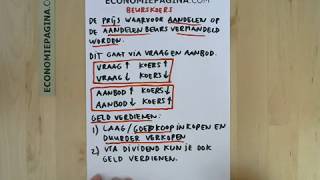 ECONOMIEPAGINA.COM
BEURSKOERS
DE PRIJS WAARVOOR AANDELEN OP
DE AANDELENBEURS VERHANDELD
WORDEN.
DIT GAAT VIA VRAAG EN AANBOD.
VRAAG ↑ KOERS ↑
VRAAG ↓ KOERS ↓
AANBOD ↑ KOERS ↓
AANBOD ↓ KOERS ↑
GELD VERDIENEN:
1) LAAG/GOEDKOOP INKOPEN EN
DUURDER VERKOPEN
2) VIA DIVIDEND KUN JE OOK
GELD VERDIENEN.
ECONOMIEPAGINA.COM